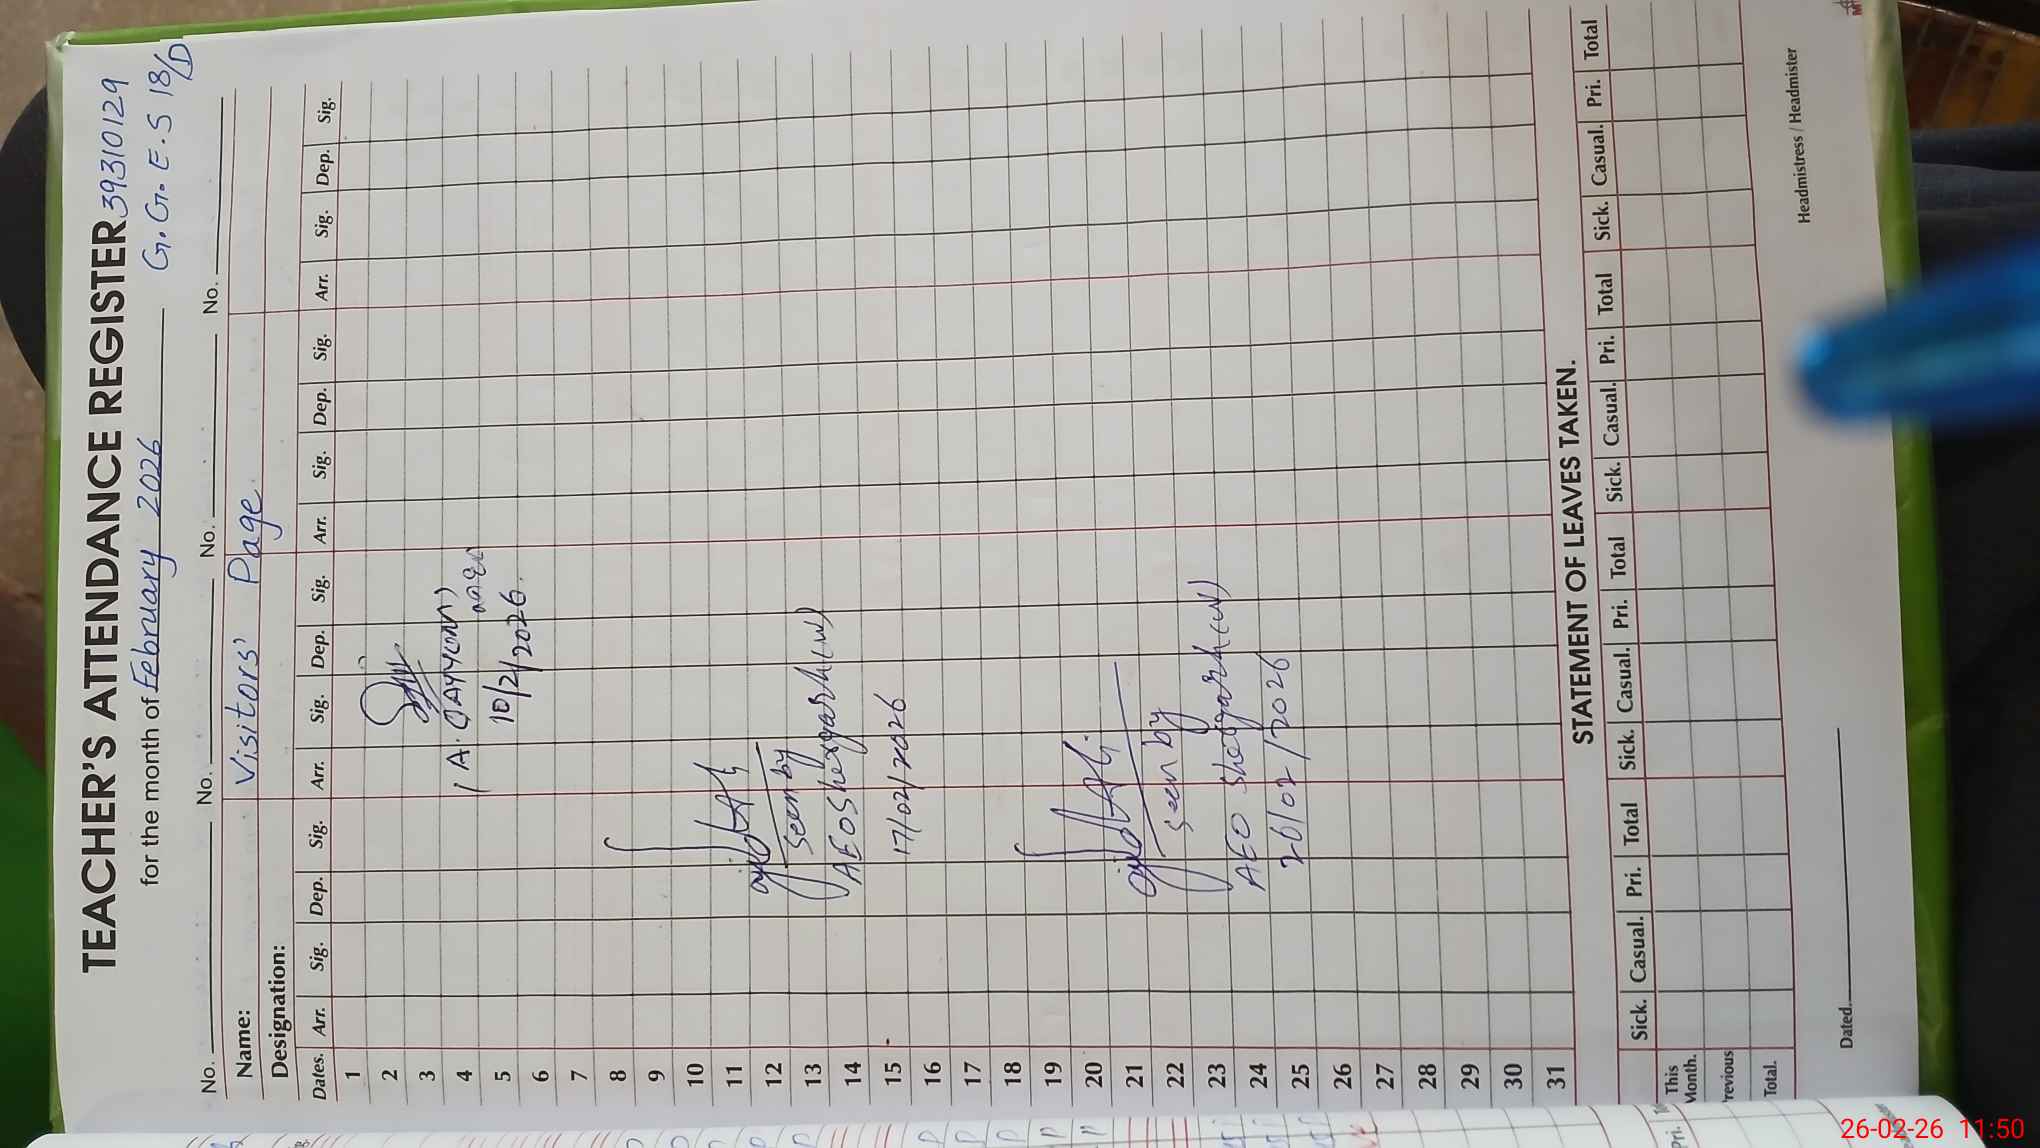 TEACHER'S ATTENDANCE REGISTER 39310129
for the month of February 2026 G.G.E.S 18/D
No. No. No. No.
Name: Visitors' Page.
Designation:
Dates. Arr. Sig. Dep. Sig. Arr. Sig. Dep. Sig. Arr. Sig. Dep. Sig. Arr. Sig. Dep. Sig.
1
2
3
4 (A. QAYYUM)
5 10/2/2026
6
7
8
9
10
11
12
13 Seen by
14 AEO Shergarh (W)
15 17/02/2026
16
17
18
19
20
21
22 seen by
23
24 AEO Shergarh (W)
25 26/02/2026
26
27
28
29
30
31
STATEMENT OF LEAVES TAKEN.
Sick. Casual. Pri. Total Sick. Casual. Pri. Total Sick. Casual. Pri. Total Sick. Casual. Pri. Total
This Month.
Previous
Total.
Dated. Headmistress / Headmister
26-02-26 11:50